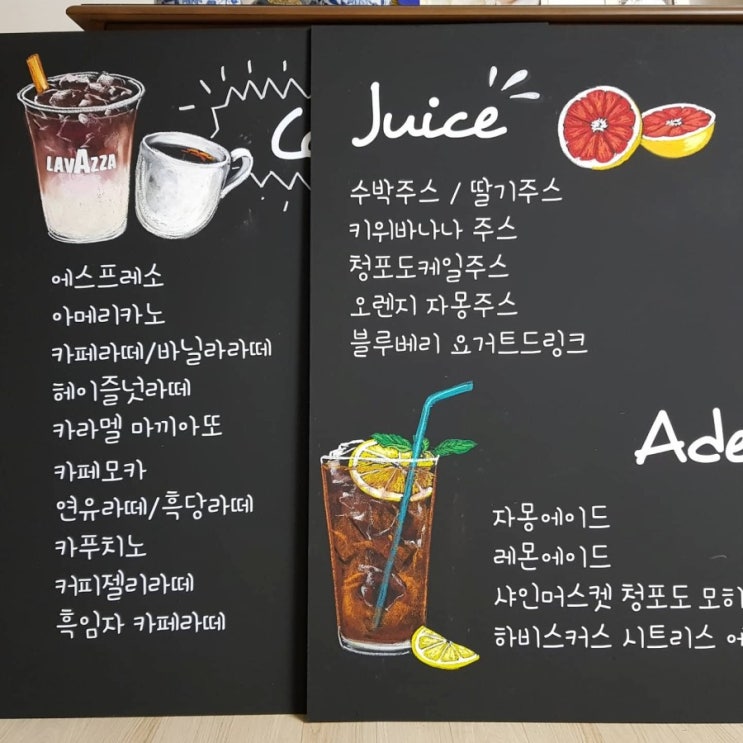 LAVAZZA
에스프레소
아메리카노
카페라떼/바닐라라떼
헤이즐넛라떼
카라멜 마끼아또
카페모카
연유라떼/흑당라떼
카푸치노
커피젤리라떼
흑임자 카페라떼
Juice
수박주스 / 딸기주스
키위바나나 주스
청포도케일주스
오렌지 자몽주스
블루베리 요거트드링크
Ade
자몽에이드
레몬에이드
샤인머스켓 청포도 모히
하비스커스 시트러스 에